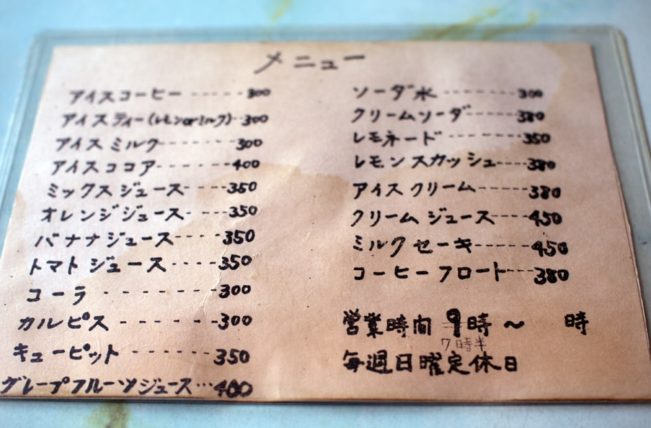 メニュー
アイスコーヒー ---- 300
アイスティー(レモンorミルク) -- 300
アイスミルク ------ 300
アイスココア ------ 400
ミックスジュース ---- 350
オレンジジュース ---- 350
バナナジュース ----- 350
トマトジュース ----- 350
コーラ --------- 300
カルピス -------- 300
キューピット ------ 350
グレープフルーツジュース … 400
ソーダ水 ------- 300
クリームソーダ ---- 380
レモネード ------ 350
レモンスカッシュ --- 380
アイスクリーム ---- 380
クリームジュース --- 450
ミルクセーキ ----- 450
コーヒーフロート --- 380
営業時間 9時～　時
7時半
毎週日曜定休日